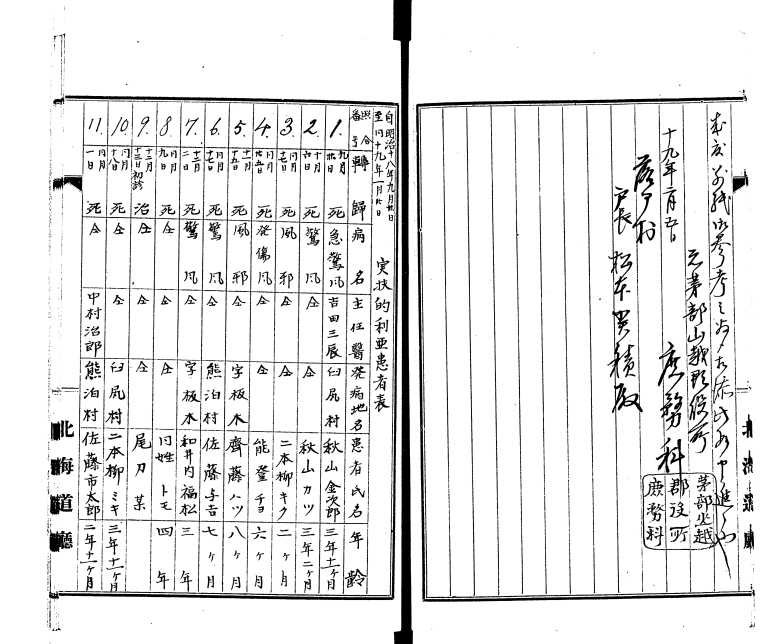 十九年二月五日
元茅部山越郡役所
庶務科
茅部山越
郡役所
庶務科
戸長 松本買積殿
自明治十八年九月廿日
至同十九年一月廿日
実扶的利亜患者表
照合番号 轉歸 病名 主任醫 発病地名 患者氏名 年齡
1. 九月廿日 死 急驚風 吉田三辰 臼尻村 秋山金次郎 三年十一ヶ月
2. 十月六日 死 驚風 仝 仝 秋山カツ 三年二ヶ月
3. 同月廿七日 死 風邪 仝 仝 二本柳キク 二ヶ月
4. 同月廿五日 死 発傷風 仝 仝 能登チヨ 六ヶ月
5. 十一月十五日 死 風邪 仝 字板木 齊藤ハツ 八ヶ月
6. 同月十七日 死 驚風 仝 熊泊村 佐藤与吉 七ヶ月
7. 十二月二日 死 驚風 仝 字板木 和井内福松 三年
8. 同月九日 死 仝 仝 仝 同姓トモ 四年
9. 十二月十三日初診 治 仝 仝 仝 尾刀某
10. 同月十八日 死 仝 仝 臼尻村 二本柳ミキ 三年十一ヶ月
11. 同月一日 死 仝 中村治郎 熊泊村 佐藤市太郎 二年十一ヶ月
北海道廳